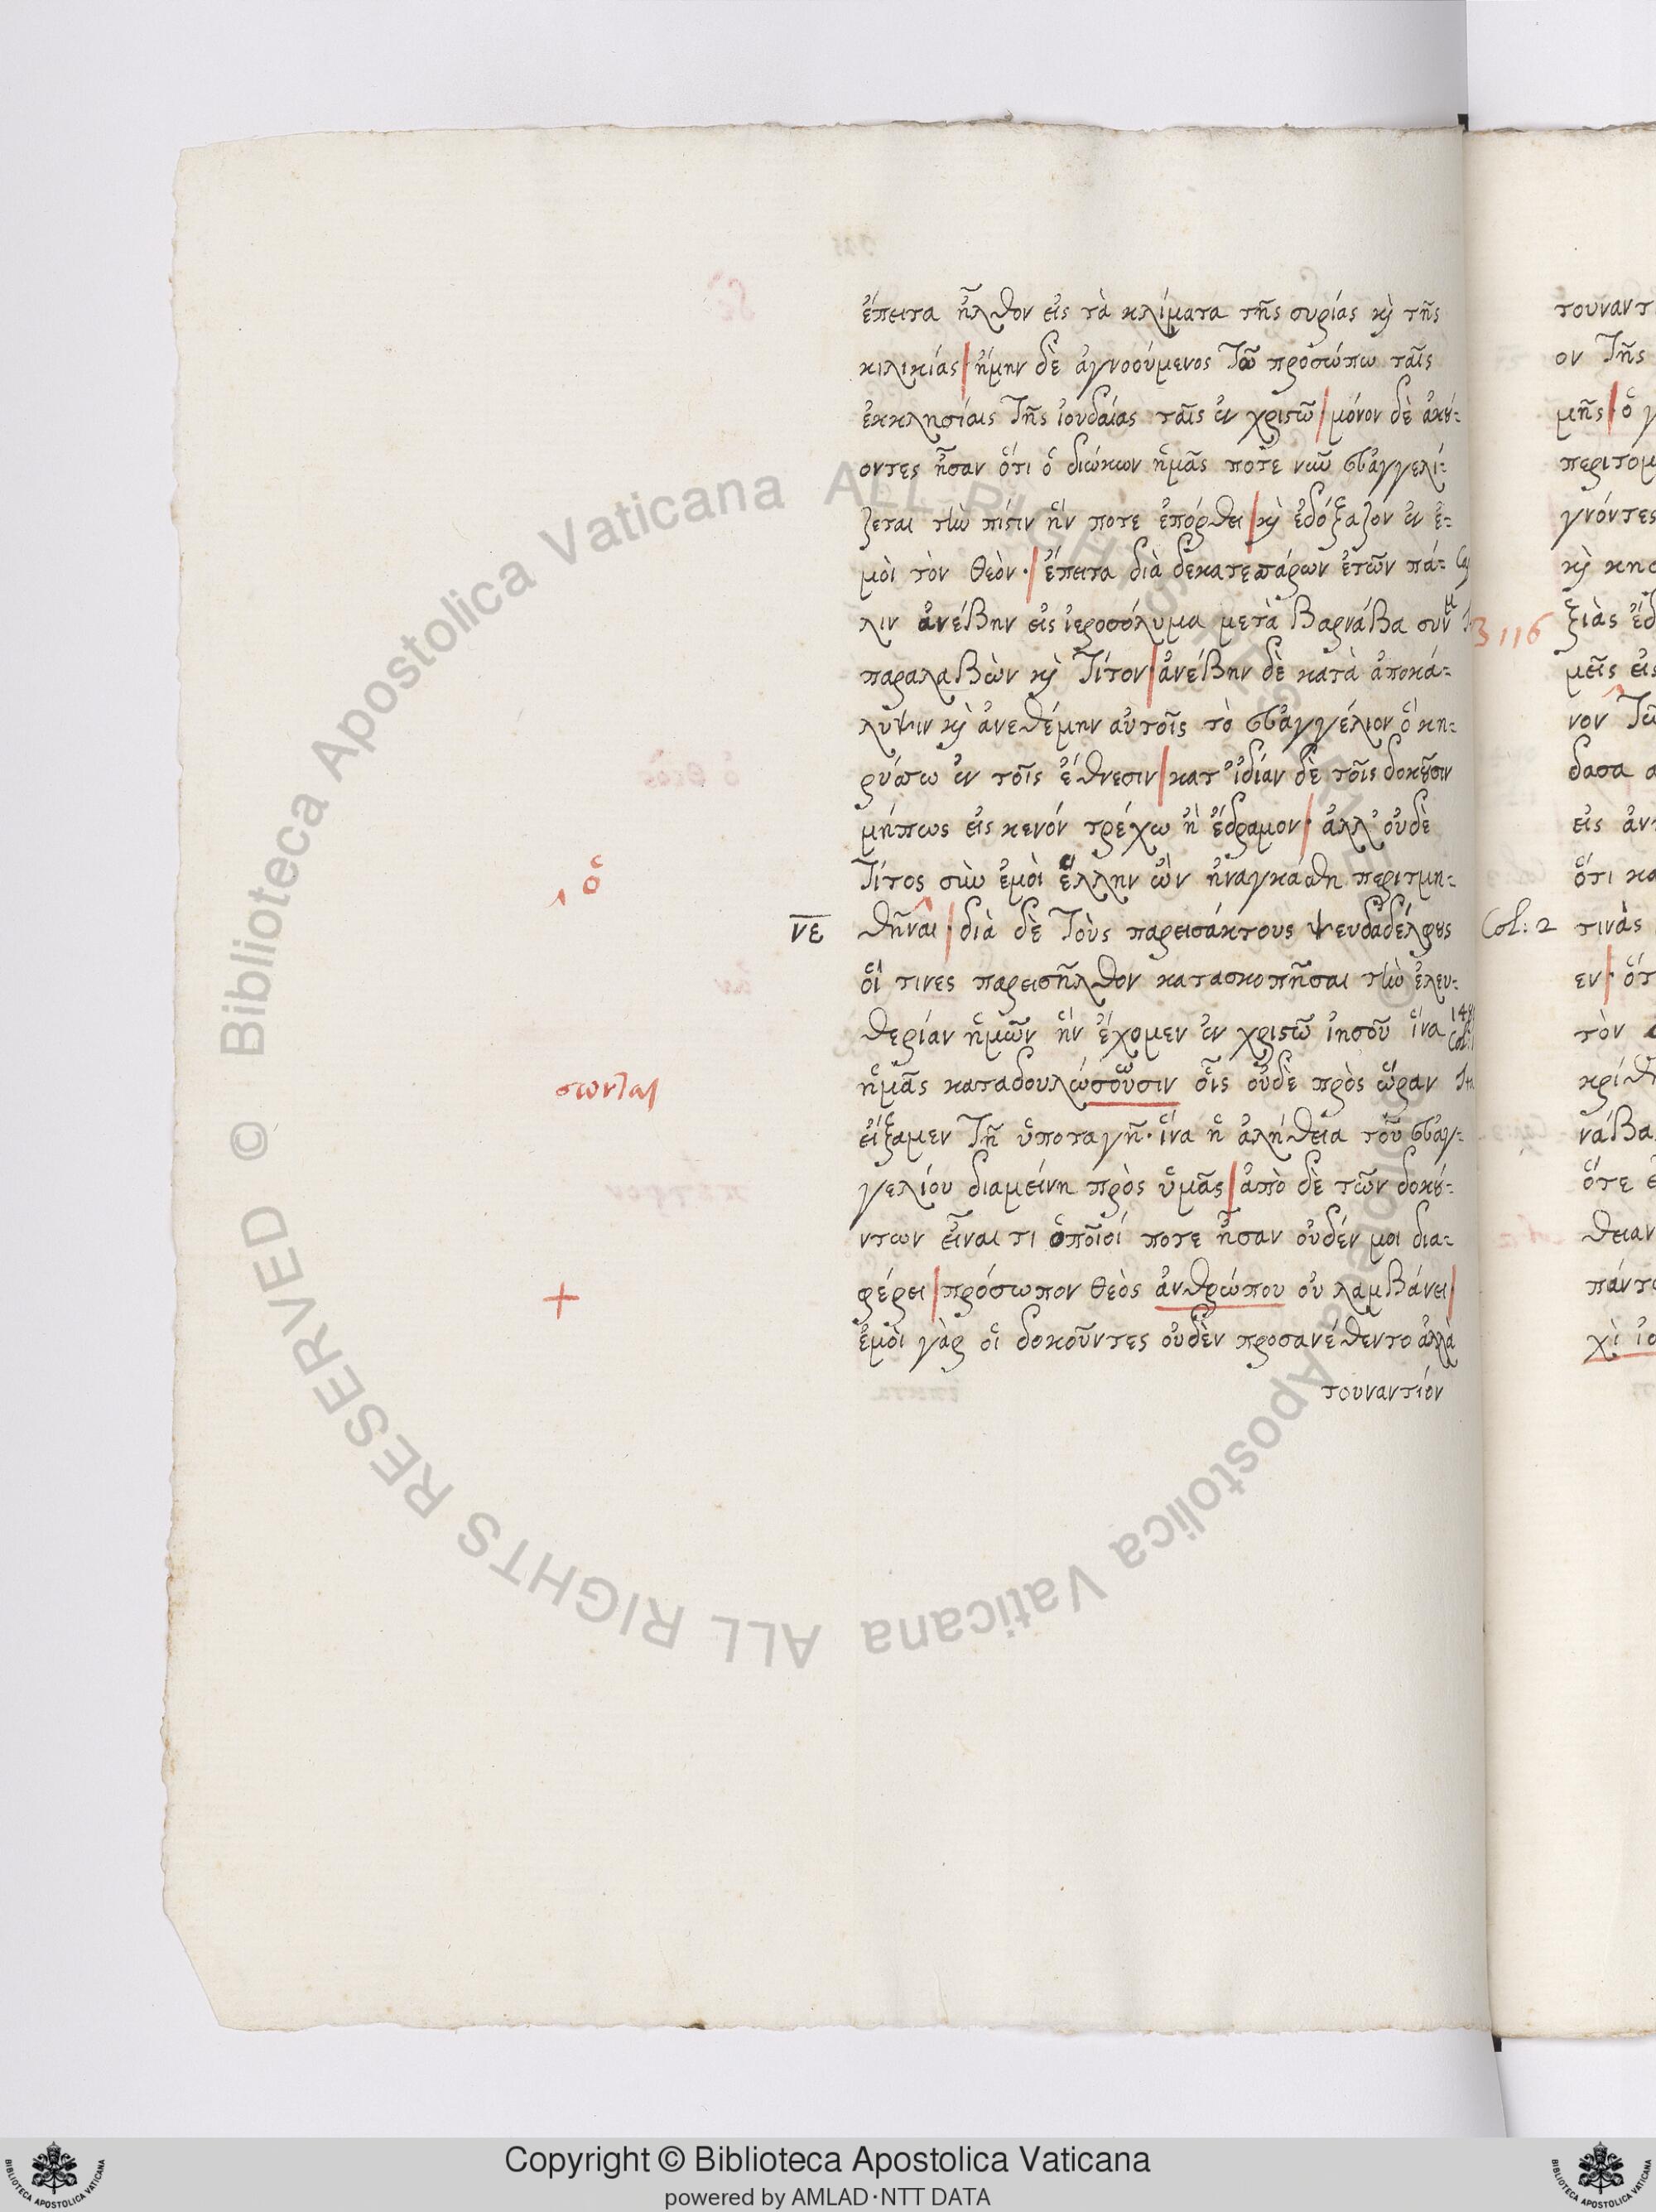 ἔπειτα ἦλθον εἰς τὰ κλίματα τῆς συρίας κỳ τῆς
κιλικίας· ἤμην δὲ ἀγνοούμενος τῶ προσώπω ταῖς
ἐκκλησίαις τῆς ἰουδαίας ταῖς ἐν χριστῶ· μόνον δὲ ἀκού-
οντες ἦσαν ὅτι ὁ διώκων ἡμᾶς ποτὲ νῦν εὐαγγελί-
ζεται τὴν πίστιν ἥν ποτε ἐπόρθει κỳ ἐδόξαζον ἐν ἐ-
μοὶ τὸν θεόν· ἔπειτα διὰ δεκατεσσάρων ἐτῶν πά-
λιν ἀνέβην εἰς ἱεροσόλυμα μετὰ Βαρνάβα συν
μ
παραλαβὼν κỳ Τίτον· ἀνέβην δὲ κατὰ ἀποκά-
λυψιν κỳ ἀνεθέμην αὐτοῖς τὸ εὐαγγέλιον ὃ κη-
ρύσσω ἐν τοῖς ἔθνεσιν κατ᾽ ἰδίαν δὲ τοῖς δοκοῦσιν
μήπως εἰς κενόν τρέχω ἢ ἔδραμον· ἀλλ᾽ οὐδὲ
Τίτος σὺν ἐμοὶ ἕλλην ὢν ἠναγκάσθη περιτμη-
, ὁ
νε θῆναι· διὰ δὲ τοὺς παρεισάκτους ψευδαδέλφους
οἵ τινες παρεισῆλθον κατασκοπῆσαι τὴν ἐλευ-
θερίαν ἡμῶν ἣν ἔχομεν ἐν χριστῶ ἰησοῦ ἵνα
ἡμᾶς καταδουλώσουσιν οἷς οὐδὲ πρὸς ὥραν
σωνται
εἴξαμεν τῆ ὑποταγῆ· ἵνα ἡ ἀλήθεια τοῦ εὐαγ-
γελίου διαμείνη πρὸς ὑμᾶς ἀπὸ δὲ τῶν δοκού-
ντων εἶναι τι ὁποῖοί ποτε ἦσαν οὐδέν μοι δια-
+
φέρει πρόσωπον θεὸς ἀνθρώπου οὐ λαμβάνει
ἐμοὶ γὰρ οἱ δοκοῦντες οὐδὲν προσανέθεντο ἀλλὰ
τουναντίον
τουναντ
ον τῆς
μῆς· ὁ γ
περιτομ
γνόντες
κỳ κη
3 116
ξιὰς ἐδ
μεῖς εἰς
νον τῶ
δασα
εἰς ἀν
ὅτι κα
Col: 2 τινὰς
εν· ὅτ
τὸν
κρίθ
νάβα
ὅτε
θειαν
πάντ
χὶ ἰο
Copyright © Biblioteca Apostolica Vaticana
powered by AMLAD·NTT DATA
© Biblioteca Apostolica Vaticana ALL RIGHTS RESERVED